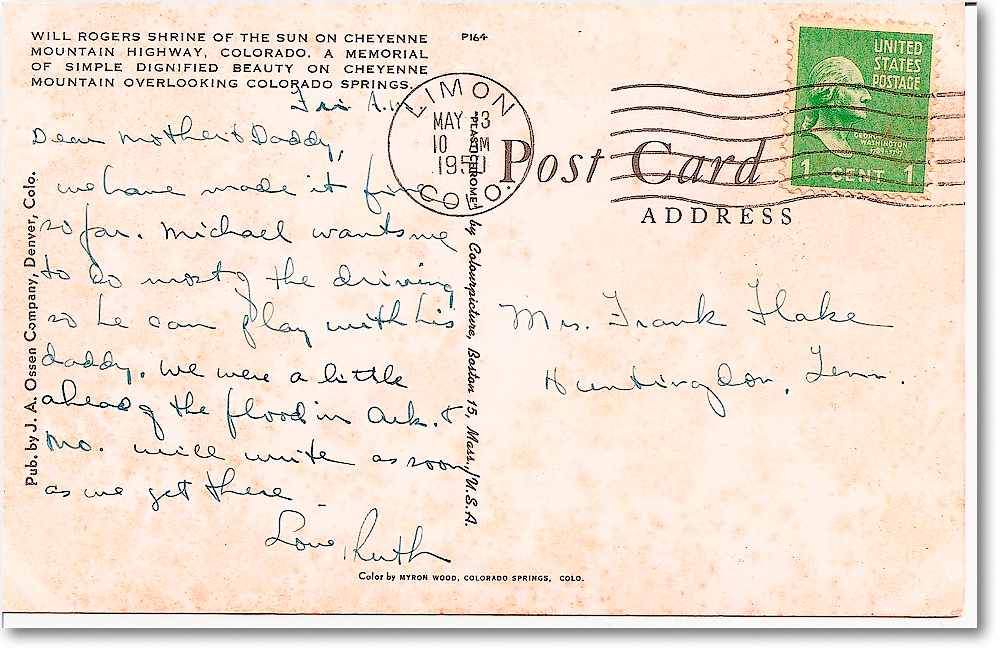 WILL ROGERS SHRINE OF THE SUN ON CHEYENNE
MOUNTAIN HIGHWAY, COLORADO. A MEMORIAL
OF SIMPLE DIGNIFIED BEAUTY ON CHEYENNE
MOUNTAIN OVERLOOKING COLORADO SPRINGS.
P164
Fri A.M.
Dear Mother & Daddy,
we have made it fine
so far. Michael wants me
to do most of the driving
so he can play with his
daddy. We were a little
ahead of the flood in Ark. &
Mo. will write as soon
as we get there
Love, Ruth
Pub. by J. A. Ossen Company, Denver, Colo.
"PLASTICHROME" by Colourpicture, Boston 15, Mass., U.S.A.
Color by MYRON WOOD, COLORADO SPRINGS, COLO.
LIMON
MAY 3
10 M
COLO.
Post Card
ADDRESS
UNITED
STATES
POSTAGE
GEORGE
WASHINGTON
1 CENT 1
Mrs. Frank Flake
Huntingdon, Tenn.